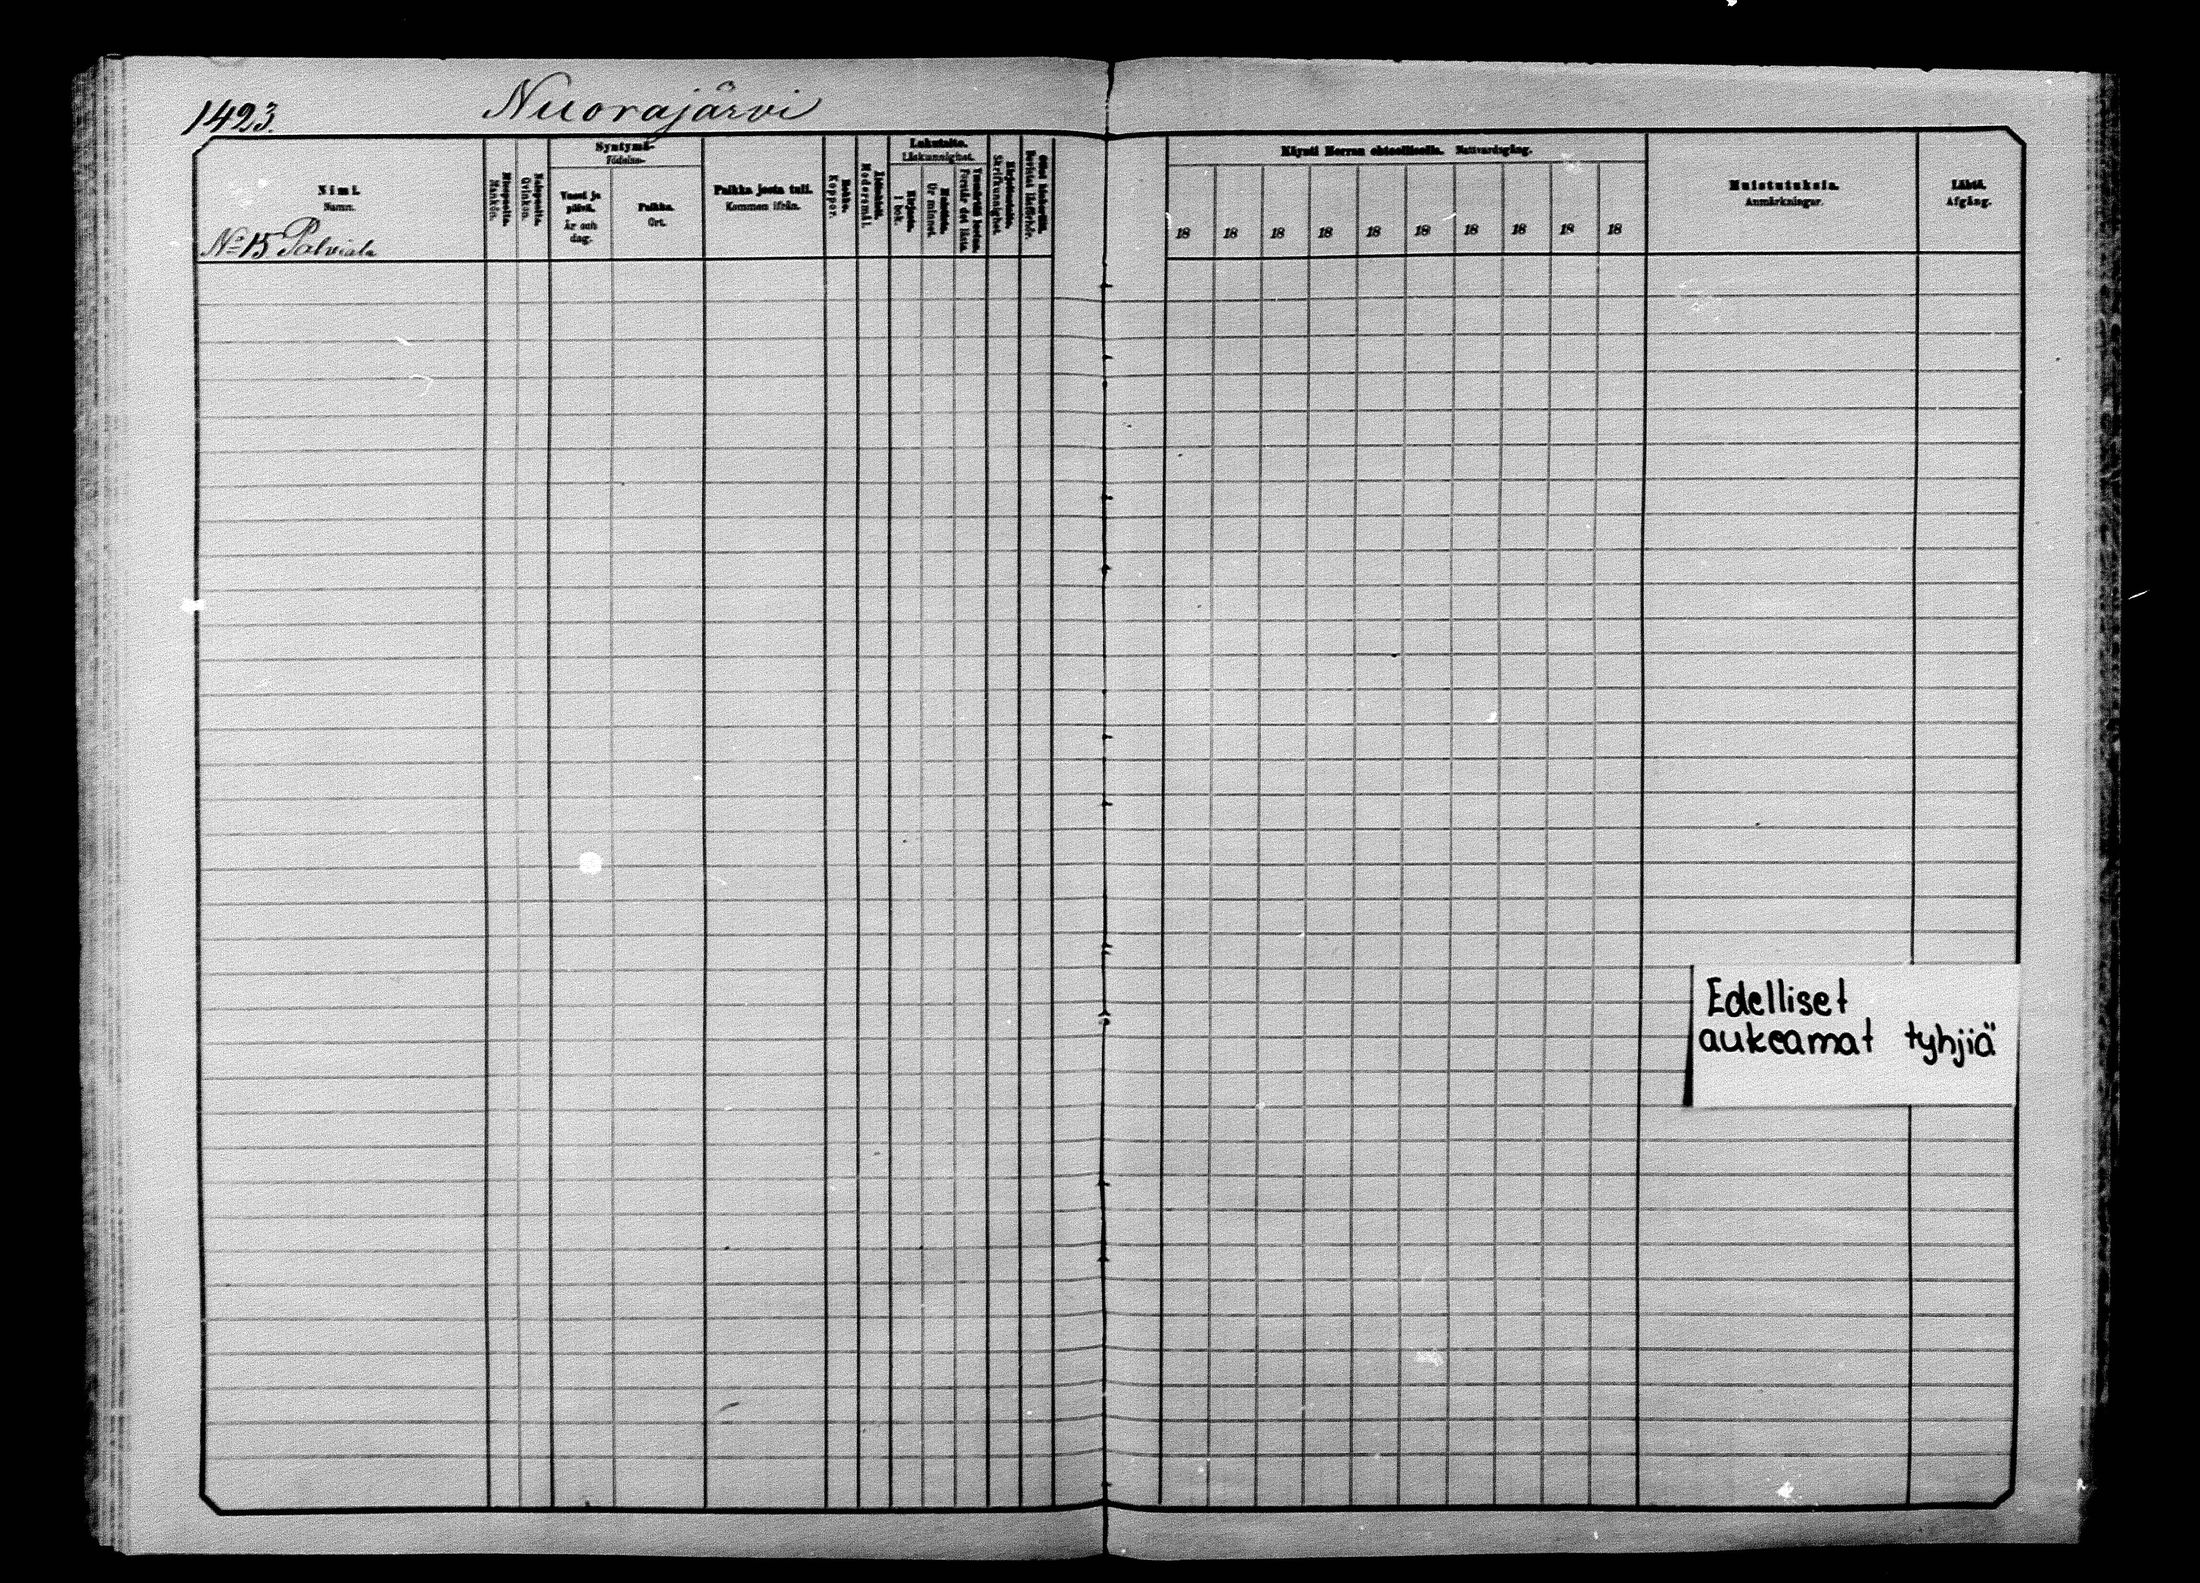 1423.
Nuorajärvi
Nimi.
Namn.
No 15 Palviala
Miespuolia.
Mankön.
Naispuolia.
Qvinkön.
Syntymä-
Födelse-
Vuosi ja
päivä.
År och
dag.
Paikka.
Ort.
Paikka josta tuli.
Kommen ifrån.
Rokko.
Koppor.
Äidinkieli.
Modersmål.
Lukutaito.
Läskunnighet.
Kirjasta.
I bok.
Ulkoa.
Ur minnet.
Förstår det lästa.
Kirjoitustaito.
Skrifkunnighet.
Bevistat läsförhör.
Käynti Herran ehtoollisella. Nattvardsgång.
18 18 18 18 18 18 18 18 18 18
Muistutuksia.
Anmärkningar.
Lähtö.
Afgång.
Edelliset
aukeamat tyhjiä